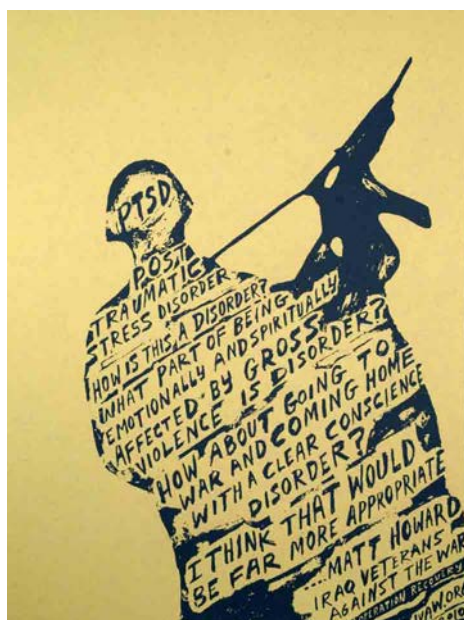 PTSD
POST
TRAUMATIC
STRESS DISORDER
HOW IS THIS A DISORDER?
WHAT PART OF BEING
EMOTIONALLY AND SPIRITUALLY
AFFECTED BY GROSS
VIOLENCE IS DISORDER?
HOW ABOUT GOING TO
WAR AND COMING HOME
WITH A CLEAR CONSCIENCE
DISORDER?
I THINK THAT WOULD
BE FAR MORE APPROPRIATE
MATT HOWARD
IRAQ VETERANS
AGAINST THE WAR
OPERATION RECOVERY
IVAW.ORG